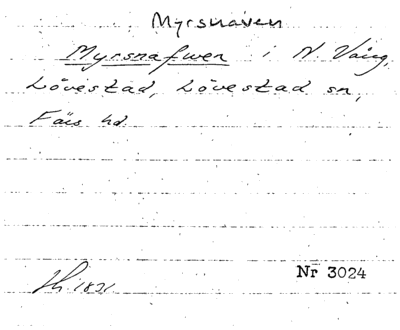 Myrsnaven
Myrsnafwen i N. Vång,
Lövestad, Lövestad sn,
Färs hd
1821
Nr 3024